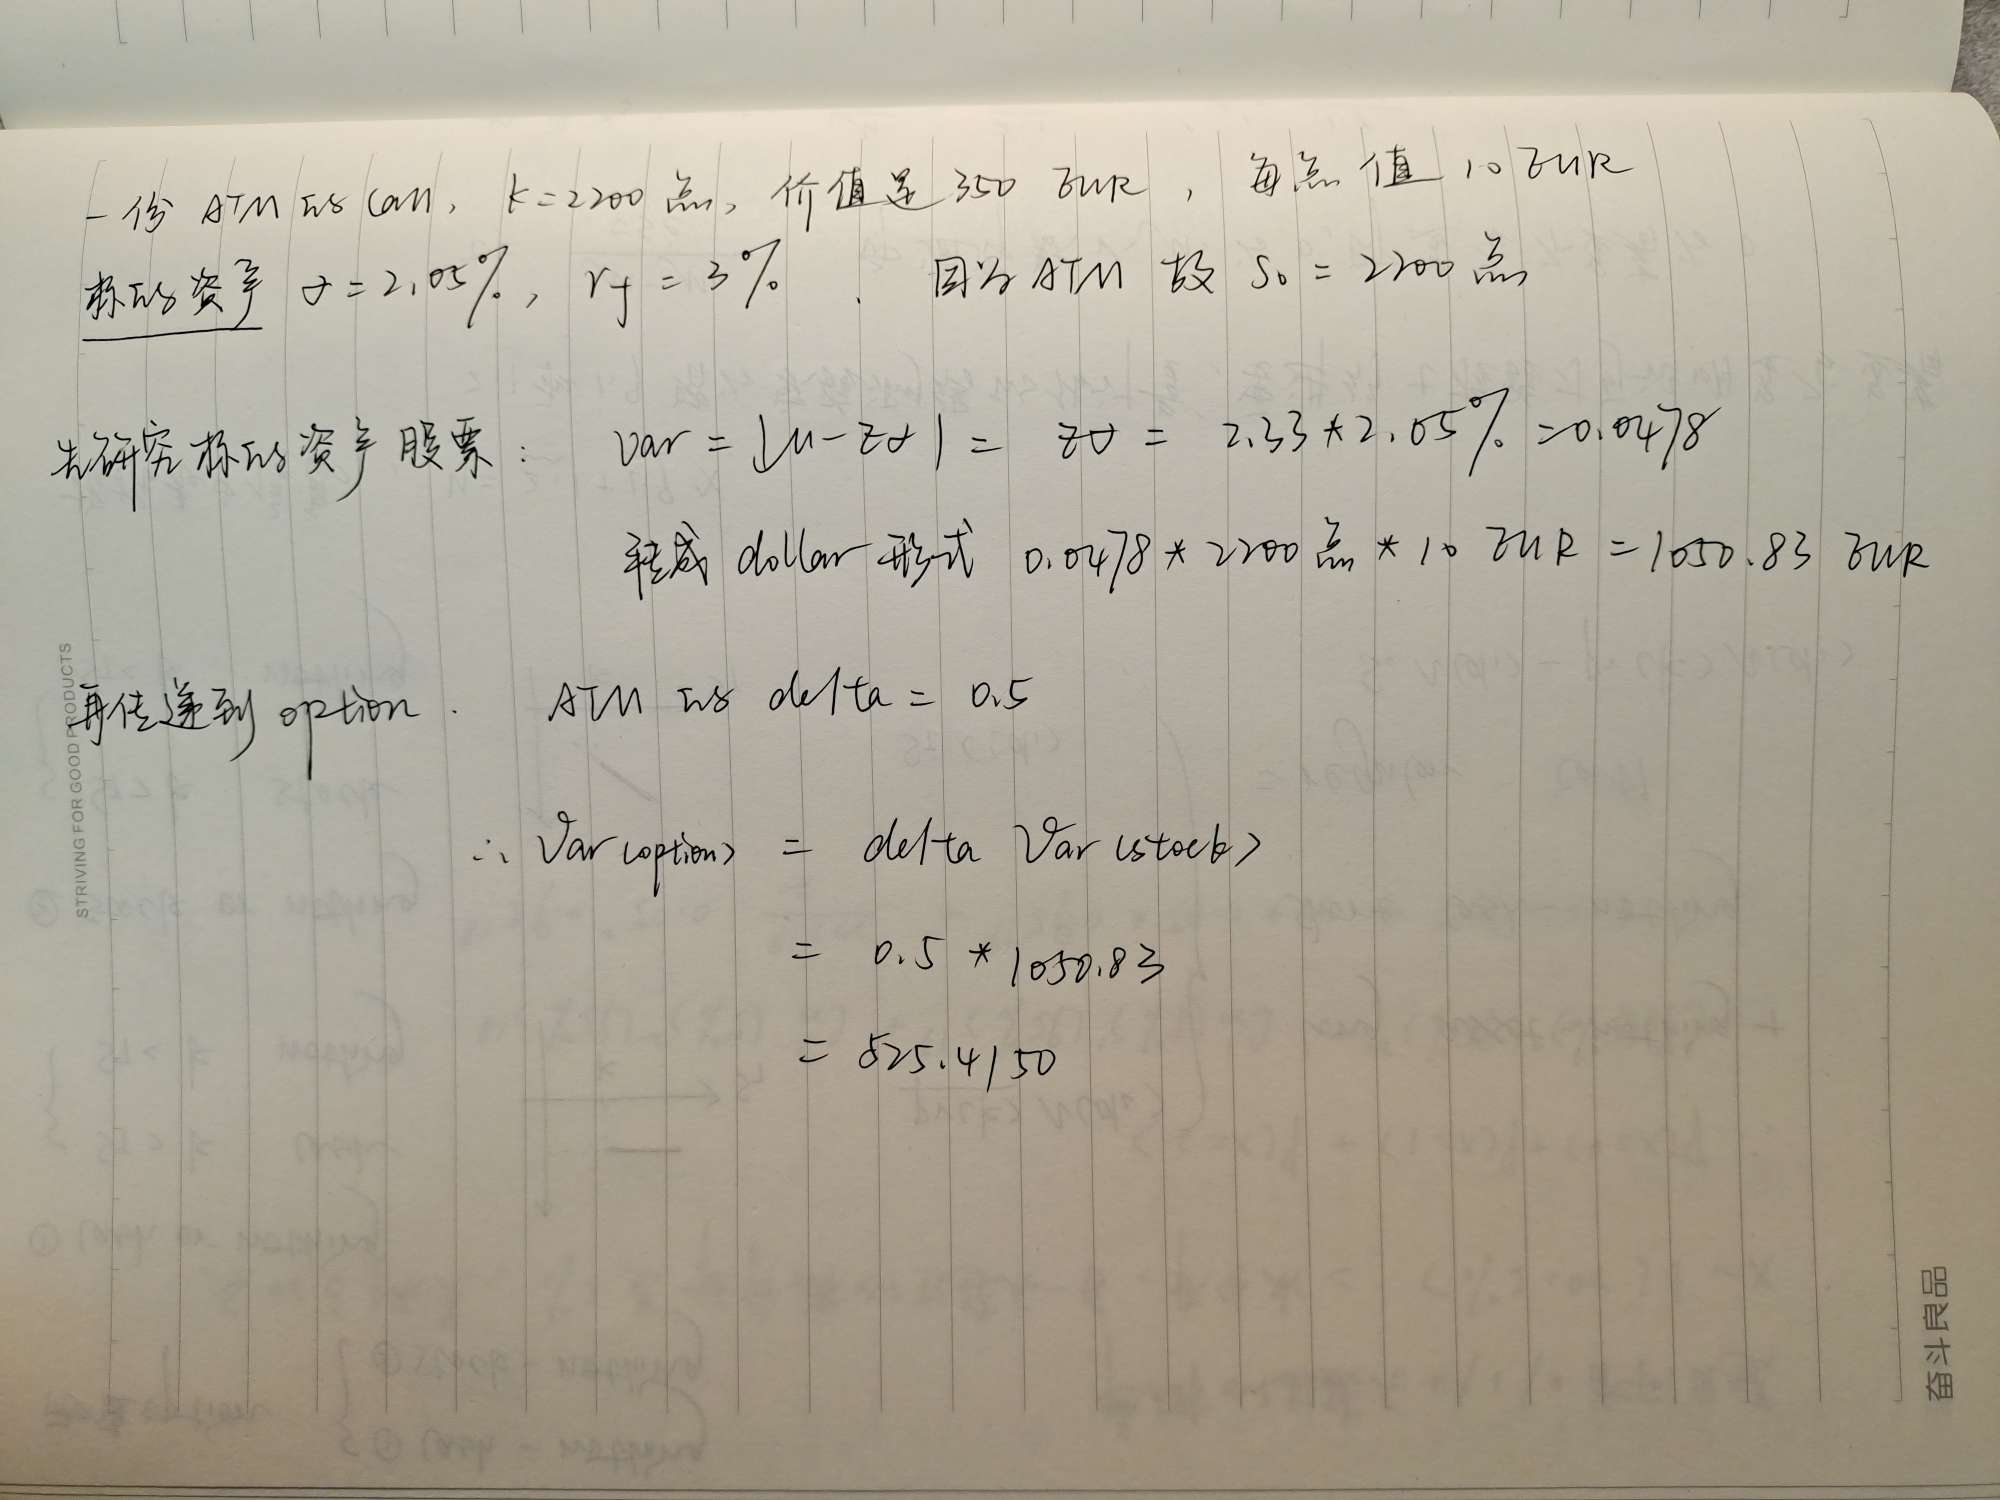 一份 ATM 的 call, k=2200 点, 价值是 350 EUR, 每点值 10 EUR
标的资产 σ=2.05%, rf=3%. 因为 ATM 故 S0=2200 点
先研究标的资产股票: Var = |u-zσ| = zσ = 2.33*2.05% =0.0478
转成 dollar 形式 0.0478*2200点*10 EUR =1050.83 EUR
再传递到 option. ATM 的 delta = 0.5
∴ Var(option) = delta Var(stock)
= 0.5 * 1050.83
= 525.4150
STRIVING FOR GOOD PRODUCTS
奋斗良品